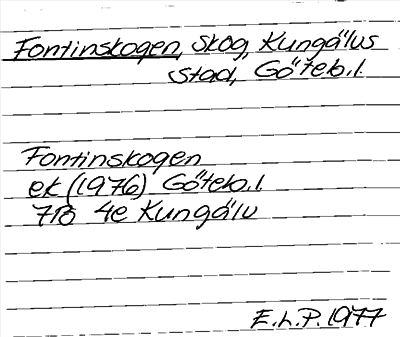 Fontinskogen, skog, Kungälvs
stad, Göteb.l.
Fontinskogen
ek (1976) Göteb.l.
7B 4e Kungälv
E.L.P. 1977